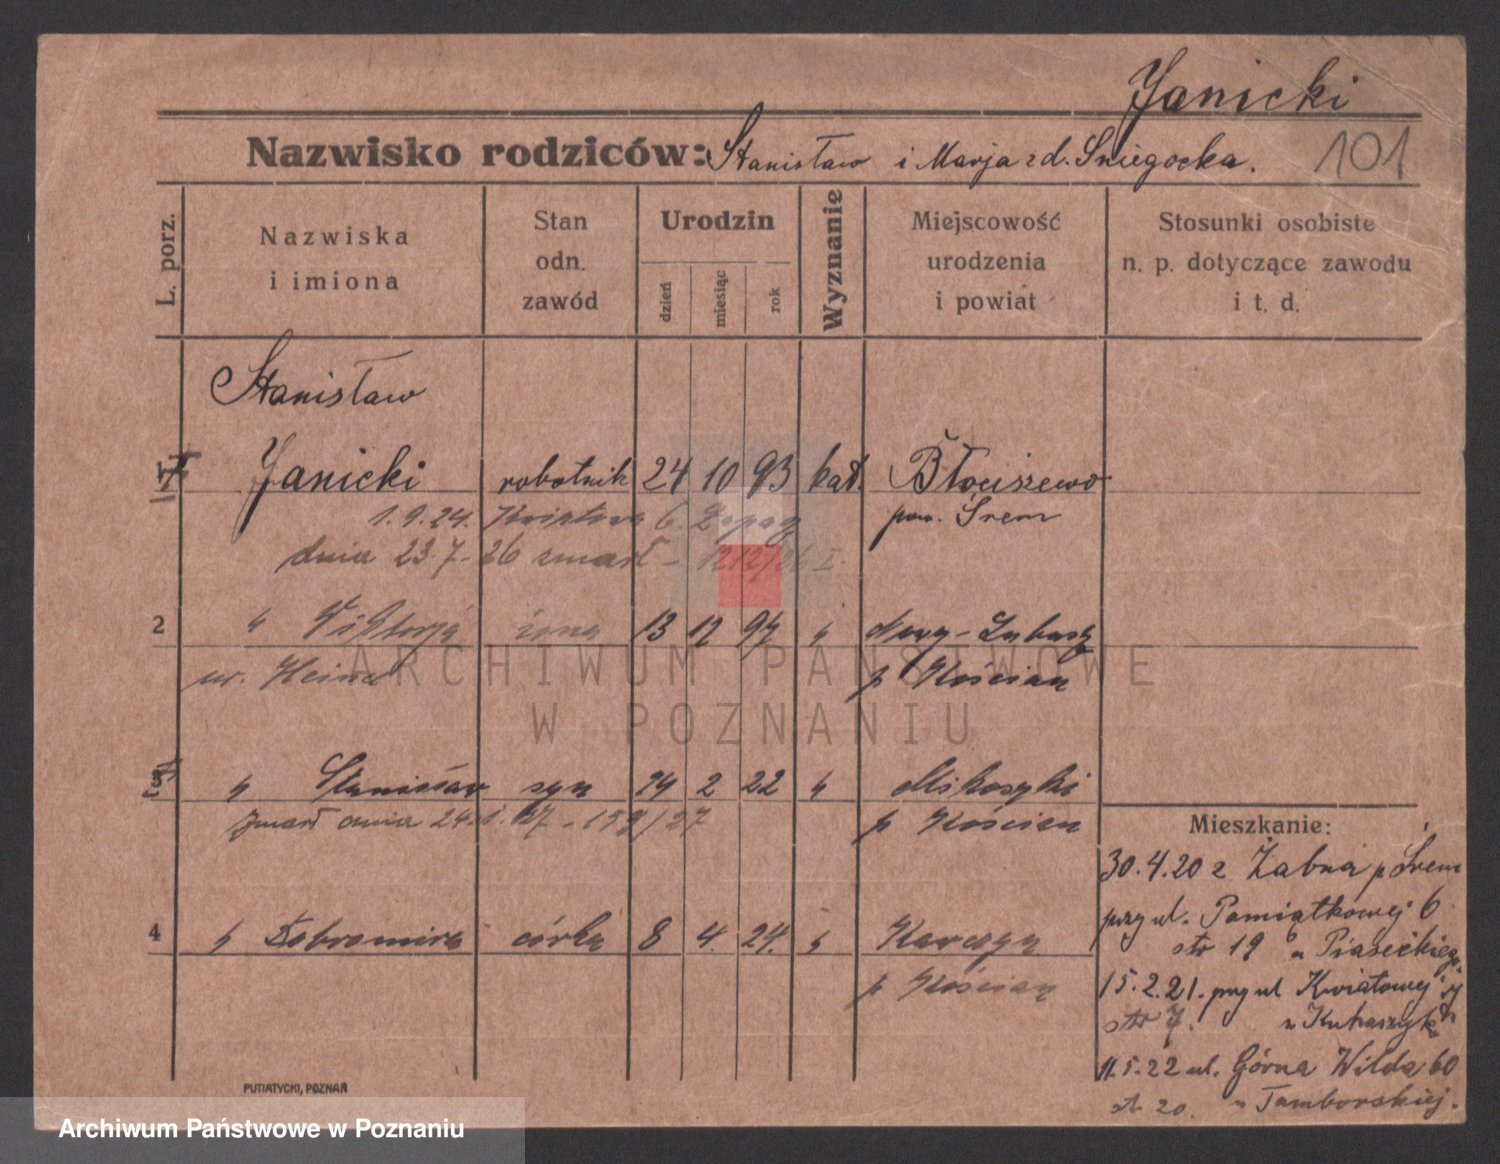 Janicki
Nazwisko rodziców: Stanisław i Marja z d. Śniegocka.
101
L. porz.
Nazwiska i imiona
Stan odn. zawód
Urodzin
dzień
miesiąc
rok
Wyznanie
Miejscowość urodzenia i powiat
Stosunki osobiste n. p. dotyczące zawodu i t. d.
Stanisław
1 Janicki robotnik 24 10 93 kat. Błociszewo
1.9.24. Kwiatowa 6.
pow. Śrem
dnia 23.7.26 zmarł - 1212/26 I.
2 " Wiktorja żona 13 12 97 " Nowy-Lubosz
ur. Heina p Kościan
ARCHIWUM PAŃSTWOWE
W POZNANIU
3 " Stanisław syn 2 22 "
zmarł dnia 24.1.27 - 159/27 p Kościan
Mieszkanie:
30.4.20 z Żabna p Śrem
przy ul. Pamiątkowej 6
str 19 u Piaseckiego
4 " Dobromira córka 8 4 24. "
p Kościan
15.2.21. przy ul Kwiatowej
str 7. u
11.5.22 ul. Górna Wilda 60
st. 20. u Tamborskiej.
PUTIATYCKI, POZNAŃ
Archiwum Państwowe w Poznaniu